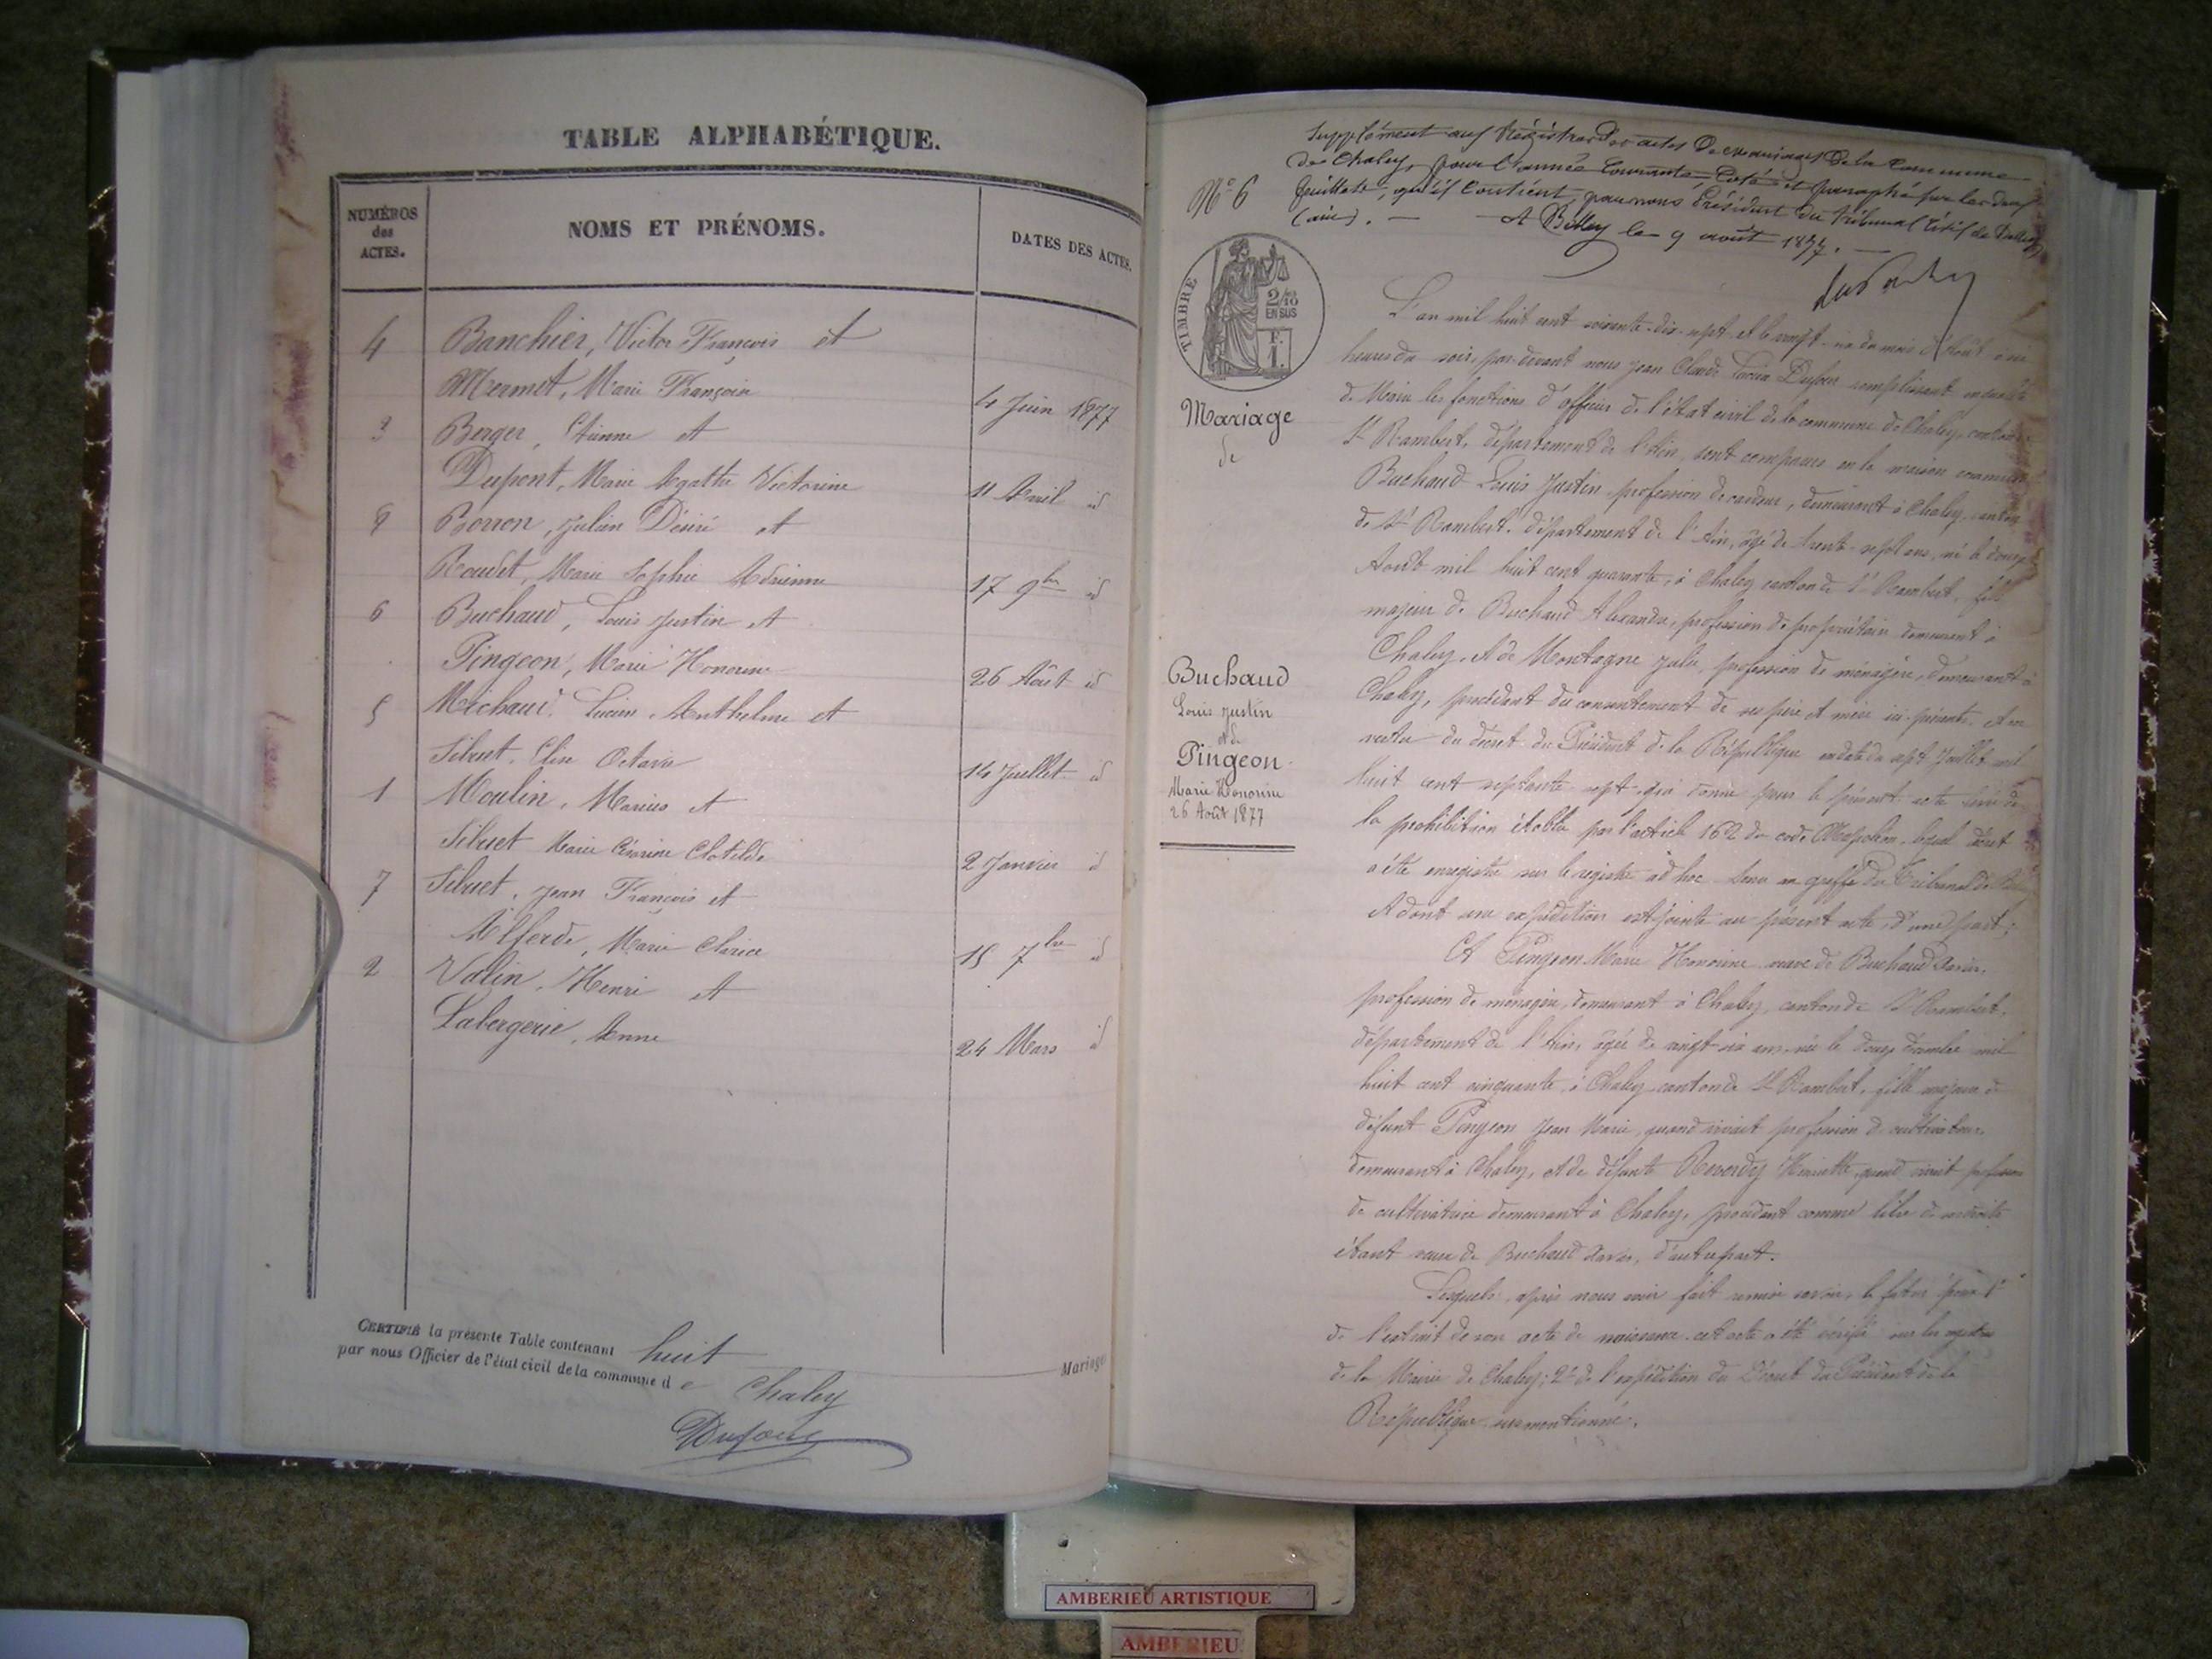 TABLE ALPHABÉTIQUE.
NUMÉROS
des
ACTES.
NOMS ET PRÉNOMS.
DATES DES ACTES.
4 Banchier, Victor François et
Mermet, Marie
4 Juin 1877
3 Berger, Etienne et
Dupont, Marie Agathe Victorine
11 Avril id
8 Borron, Julien Désiré et
Roudet, Marie Sophie Adrienne
17 9bre id
6 Buchaud, Louis Justin et
Pingeon, Marie Honorine
26 Août id
5 Michaud, Lucien, Anthelme et
Sibuet, Octavie
14 Juillet id
1 Moulin, Marius et
Sibuet Marie Clotilde
2 Janvier id
7 Sibuet, Jean François et
Marie Clarice
15 7bre id
2 Valin, Henri et
Labergerie, Anne
24 Mars id
CERTIFIÉ la présente Table contenant huit
Mariages
par nous Officier de l'état civil de la commune de Chaley
Dufour
Supplément aux Régistres des actes de mariages de la Commune
de Chaley, pour l'année Courante, Coté et paraphé sur les deux
N° 6
feuillets, qu'il Contient, par nous Président du tribunal Civil de Belley
(ain). — A Belley le 9 août 1877. —
TIMBRE
2/10
EN SUS
F.
1.
Mariage
de
Buchaud
Louis Justin
et de
Pingeon
Marie Honorine
26 Août 1877
L'an mil huit cent soixante-dix-sept et le vingt-six du mois d'Août à
heures du soir, par devant nous Jean Claude Dufour remplissant en qualité
de Maire les fonctions d'officier de l'état civil de la commune de Chaley, canton de
St Rambert, département de l'Ain, sont comparus en la maison commune
Buchaud Louis Justin, profession de , demeurant à Chaley, canton
de St Rambert, département de l'Ain, âgé de trente-sept ans, né le douze
Août mil huit cent quarante, à Chaley canton de St Rambert, fils
majeur de Buchaud Alexandre, profession de propriétaire demeurant à
Chaley, et de Montagne Julie, profession de ménagère, demeurant à
Chaley, procédant du consentement de ses père et mère ici présents, et en
vertu du décret du Président de la République en date du sept Juillet mil
huit cent septante-sept qui donne pour le présent acte de
la prohibition établie par l'article 162 du code Napoléon, lequel décret
a été enregistré sur le registre ad hoc tenu au greffe du Tribunal de
et dont une expédition est jointe au présent acte, d'une part;
Et Pingeon Marie Honorine veuve de Buchaud Xavier,
profession de ménagère, demeurant à Chaley, canton de St Rambert,
département de l'Ain, âgée de vingt-six ans, née le douze Décembre mil
huit cent cinquante à Chaley canton de St Rambert, fille majeure de
défunt Pingeon Jean Marie, quand vivait profession de cultivateur,
demeurant à Chaley, et de défunte Reverdy Henriette, quand vivait profession
de cultivatrice demeurant à Chaley, procédant comme libre de ses droits
étant veuve de Buchaud Xavier, d'autre part.
Lesquels, après nous avoir fait remise savoir, le futur époux 1°
de l'extrait de son acte de naissance, cet acte a été vérifié sur les registres
de la Mairie de Chaley; 2° de l'expédition du Décret du Président de la
République susmentionné.
AMBERIEU ARTISTIQUE
AMBERIEU